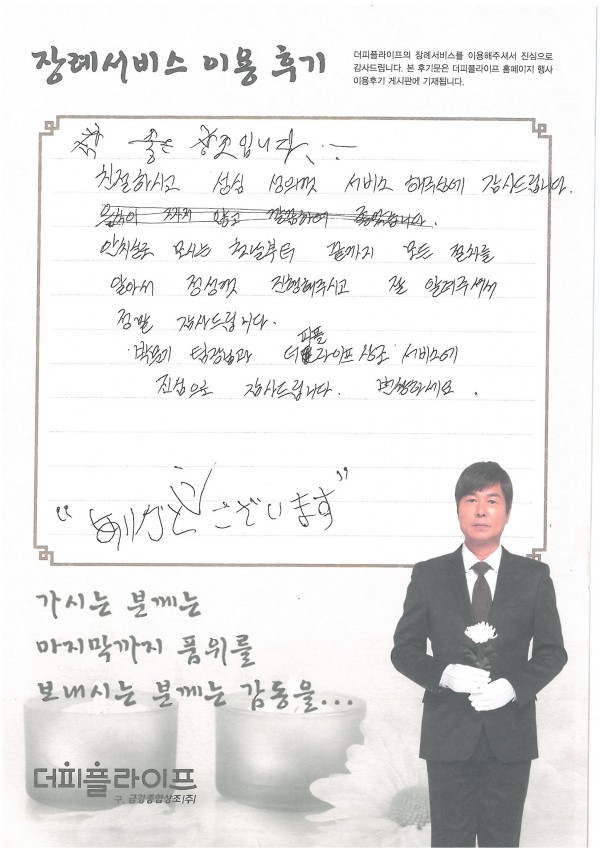 장례서비스 이용 후기
더피플라이프의 장례서비스를 이용해주셔서 진심으로
감사드립니다. 본 후기문은 더피플라이프 홈페이지 행사
이용후기 게시판에 기재됩니다.
참 좋은 상조입니다.
친절하시고 성심 성의껏 서비스 해주심에 감사드립니다.
않고 깔끔하여 좋았습니다.
안치실로 모시는 첫날부터 끝까지 모든 절차를
알아서 정성껏 진행해주시고 잘 알려주셔서
정말 감사드립니다.
팀장님과 더피플라이프 상조 서비스에
진심으로 감사드립니다. 번창하세요.
"ありがとうございます"
가시는 분께는
마지막까지 품위를
보내시는 분께는 감동을...
더피플라이프
구. 금강종합상조(주)